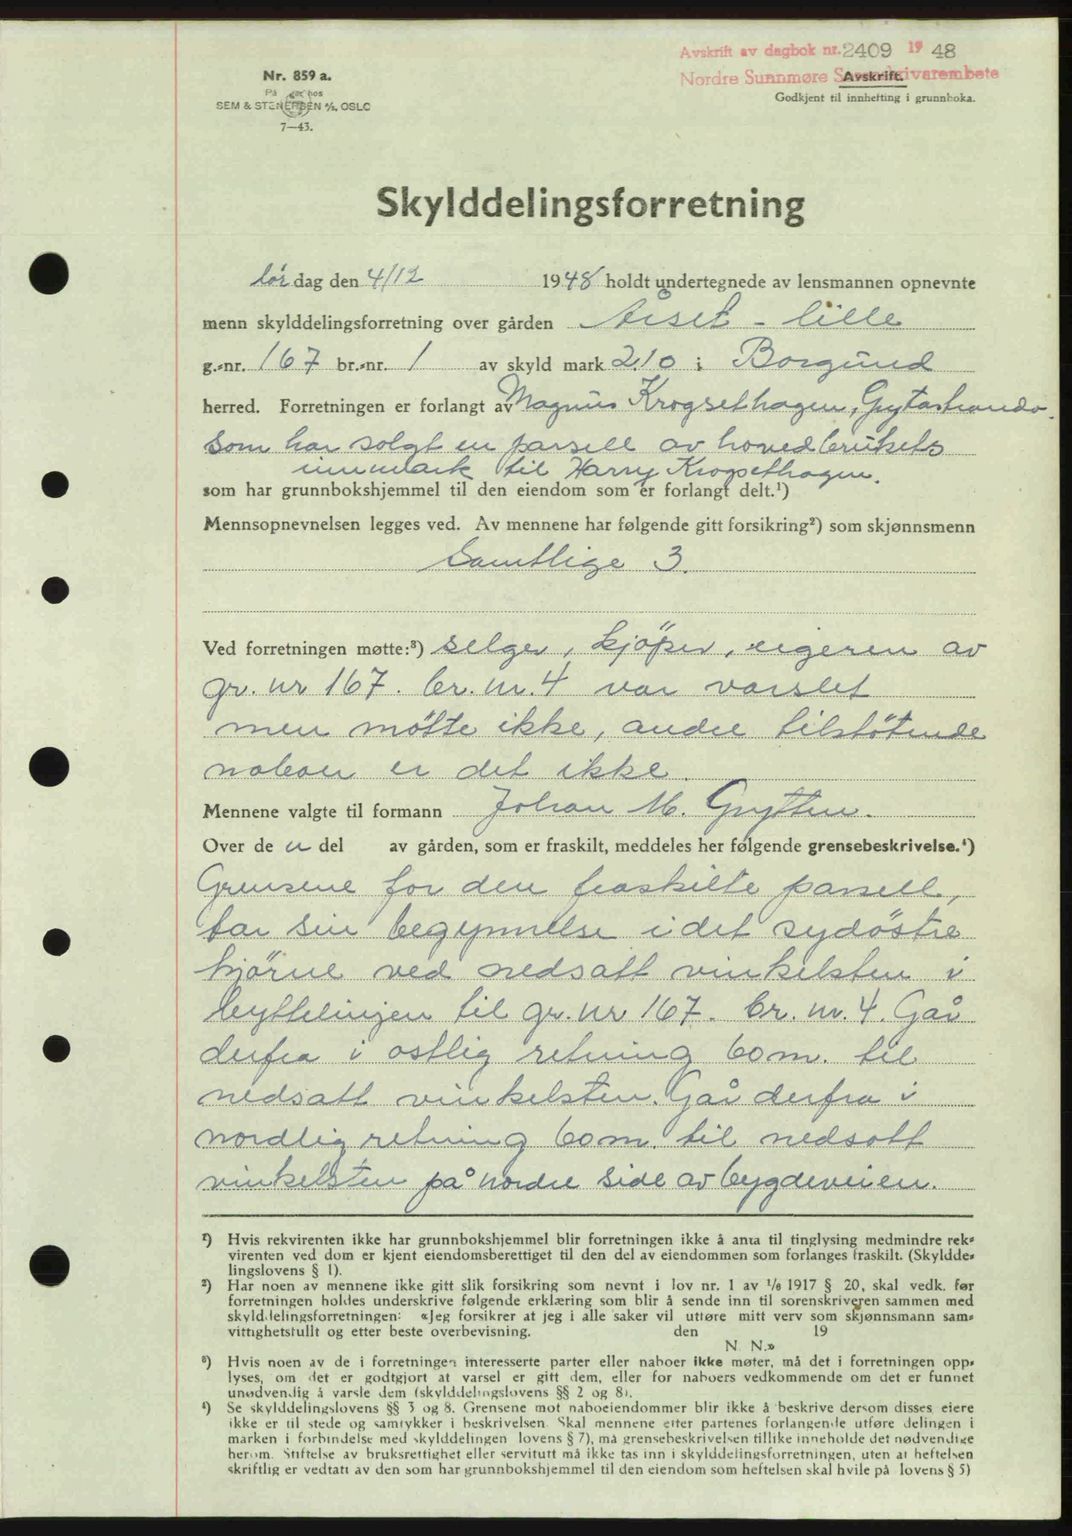 Avskrift av dagbok nr. 2409 19 48
Nordre Sunnmøre Sorenskrivarembete
Nr. 859 a.
Avskrift.
På lager hos
SEM & STENERSEN A/S, OSLO
Godkjent til innhefting i grunnboka.
7—43.
Skylddelingsforretning
lördag den 4/12 1948 holdt undertegnede av lensmannen opnevnte
menn skylddelingsforretning over gården Åset - lille
g.-nr. 167 br.-nr. 1 av skyld mark 2.10 i Borgund
herred. Forretningen er forlangt av Magnus Krogsethagen, Grytastranda.
som har solgt en parsell av hovedbrukets
innmark til Harry Krogsethagen.
som har grunnbokshjemmel til den eiendom som er forlangt delt.¹)
Mennsopnevnelsen legges ved. Av mennene har følgende gitt forsikring²) som skjønnsmenn
Samtlige 3.
Ved forretningen møtte:³) selger, kjöper, eigeren av
gr. nr 167. br. nr. 4 var varslet
men mötte ikke, andre tilstötende
naboer er det ikke.
Mennene valgte til formann Johan M. Grytten.
Over de n del av gården, som er fraskilt, meddeles her følgende grensebeskrivelse.⁴)
Grensene for den fraskilte parsell,
tar sin begynnelse i det sydöstre
hjörne ved nedsatt vinkelsten i
byttelinjen til gr. nr 167. br. nr. 4. Går
derfra i ostlig retning 60 m. til
nedsatt vinkelsten. Går derfra i
nordlig retning 60 m. til nedsatt
vinkelsten på nordre side av bygdeveien.
¹) Hvis rekvirenten ikke har grunnbokshjemmel blir forretningen ikke å anta til tinglysing medmindre rek-
virenten ved dom er kjent eiendomsberettiget til den del av eiendommen som forlanges fraskilt. (Skyldde-
lingslovens § 1).
²) Har noen av mennene ikke gitt slik forsikring som nevnt i lov nr. 1 av 1/6 1917 § 20, skal vedk. før
forretningen holdes underskrive følgende erklæring som blir å sende inn til sorenskriveren sammen med
skylddelingsforretningen: «Jeg forsikrer at jeg i alle saker vil utføre mitt verv som skjønnsmann sam-
vittighetsfullt og etter beste overbevisning. den 19
N. N.»
³) Hvis noen av de i forretningen interesserte parter eller naboer ikke møter, må det i forretningen opp-
lyses, om det er godtgjort at varsel er gitt dem, eller for naboers vedkommende om det er funnet
unødvendig å varsle dem (skylddelingslovens §§ 2 og 8).
⁴) Se skylddelingslovens §§ 3 og 8. Grensene mot naboeiendommer blir ikke å beskrive dersom disses eiere
ikke er til stede og samtykker i beskrivelsen. Skal mennene etter partenes forlangende utføre delingen i
marken i forbindelse med skylddelingen (lovens § 7), må grensebeskrivelsen tillike inneholde det nødvendige
herom. Stiftelse av bruksrettighet eller servitutt må ikke tas inn i skylddelingsforretningen, uten at heftelsen
skriftlig er vedtatt av den som har grunnbokshjemmel til den eiendom som heftelsen skal hvile på (lovens § 5)